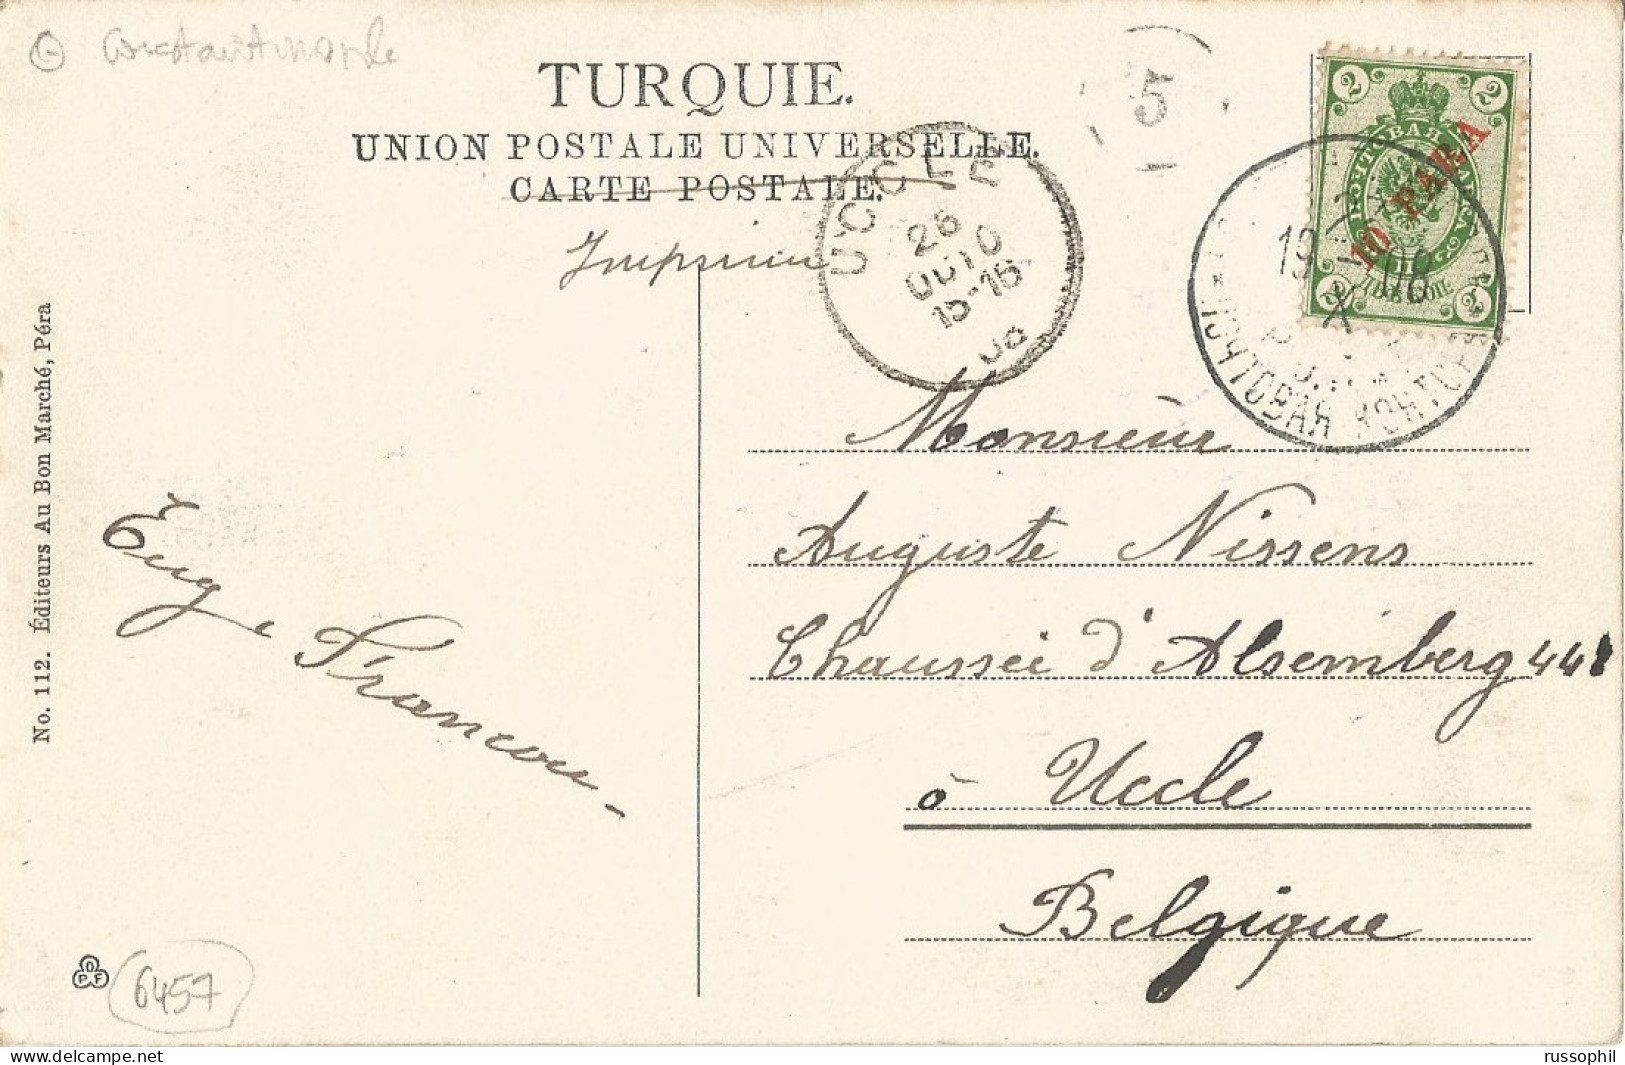 Constantinople
TURQUIE.
UNION POSTALE UNIVERSELLE.
CARTE POSTALE.
Imprimé
UCCLE
26
OCTO
15-16
08
5
2 2
ПОЧТОВАЯ МАРКА
10 PARA
ДВѢ КОП.
2 2
19 X 08
ПОЧТОВАЯ КОНТОРА
Monsieur
Auguste Nissens
Chaussée d'Alsemberg 441
à Uccle
Belgique
Eug. Francou
No. 112. Éditeurs Au Bon Marché, Péra
D
P F
6457
russophil
delcampe.net